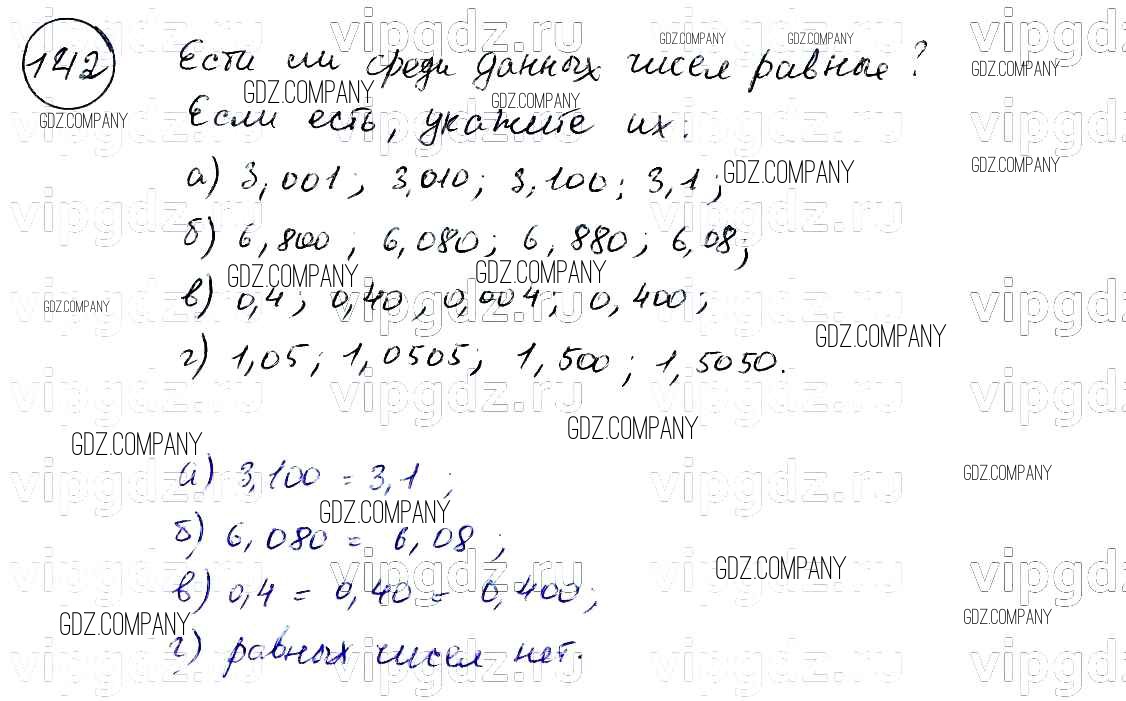 142 Есть ли среди данных чисел равные?
Если есть, укажите их:
а) 3,001; 3,010; 3,100; 3,1;
б) 6,800; 6,080; 6,880; 6,08;
в) 0,4; 0,40; 0,004; 0,400;
г) 1,05; 1,0505; 1,500; 1,5050.
а) 3,100 = 3,1;
б) 6,080 = 6,08;
в) 0,4 = 0,40 = 0,400;
г) равных чисел нет.